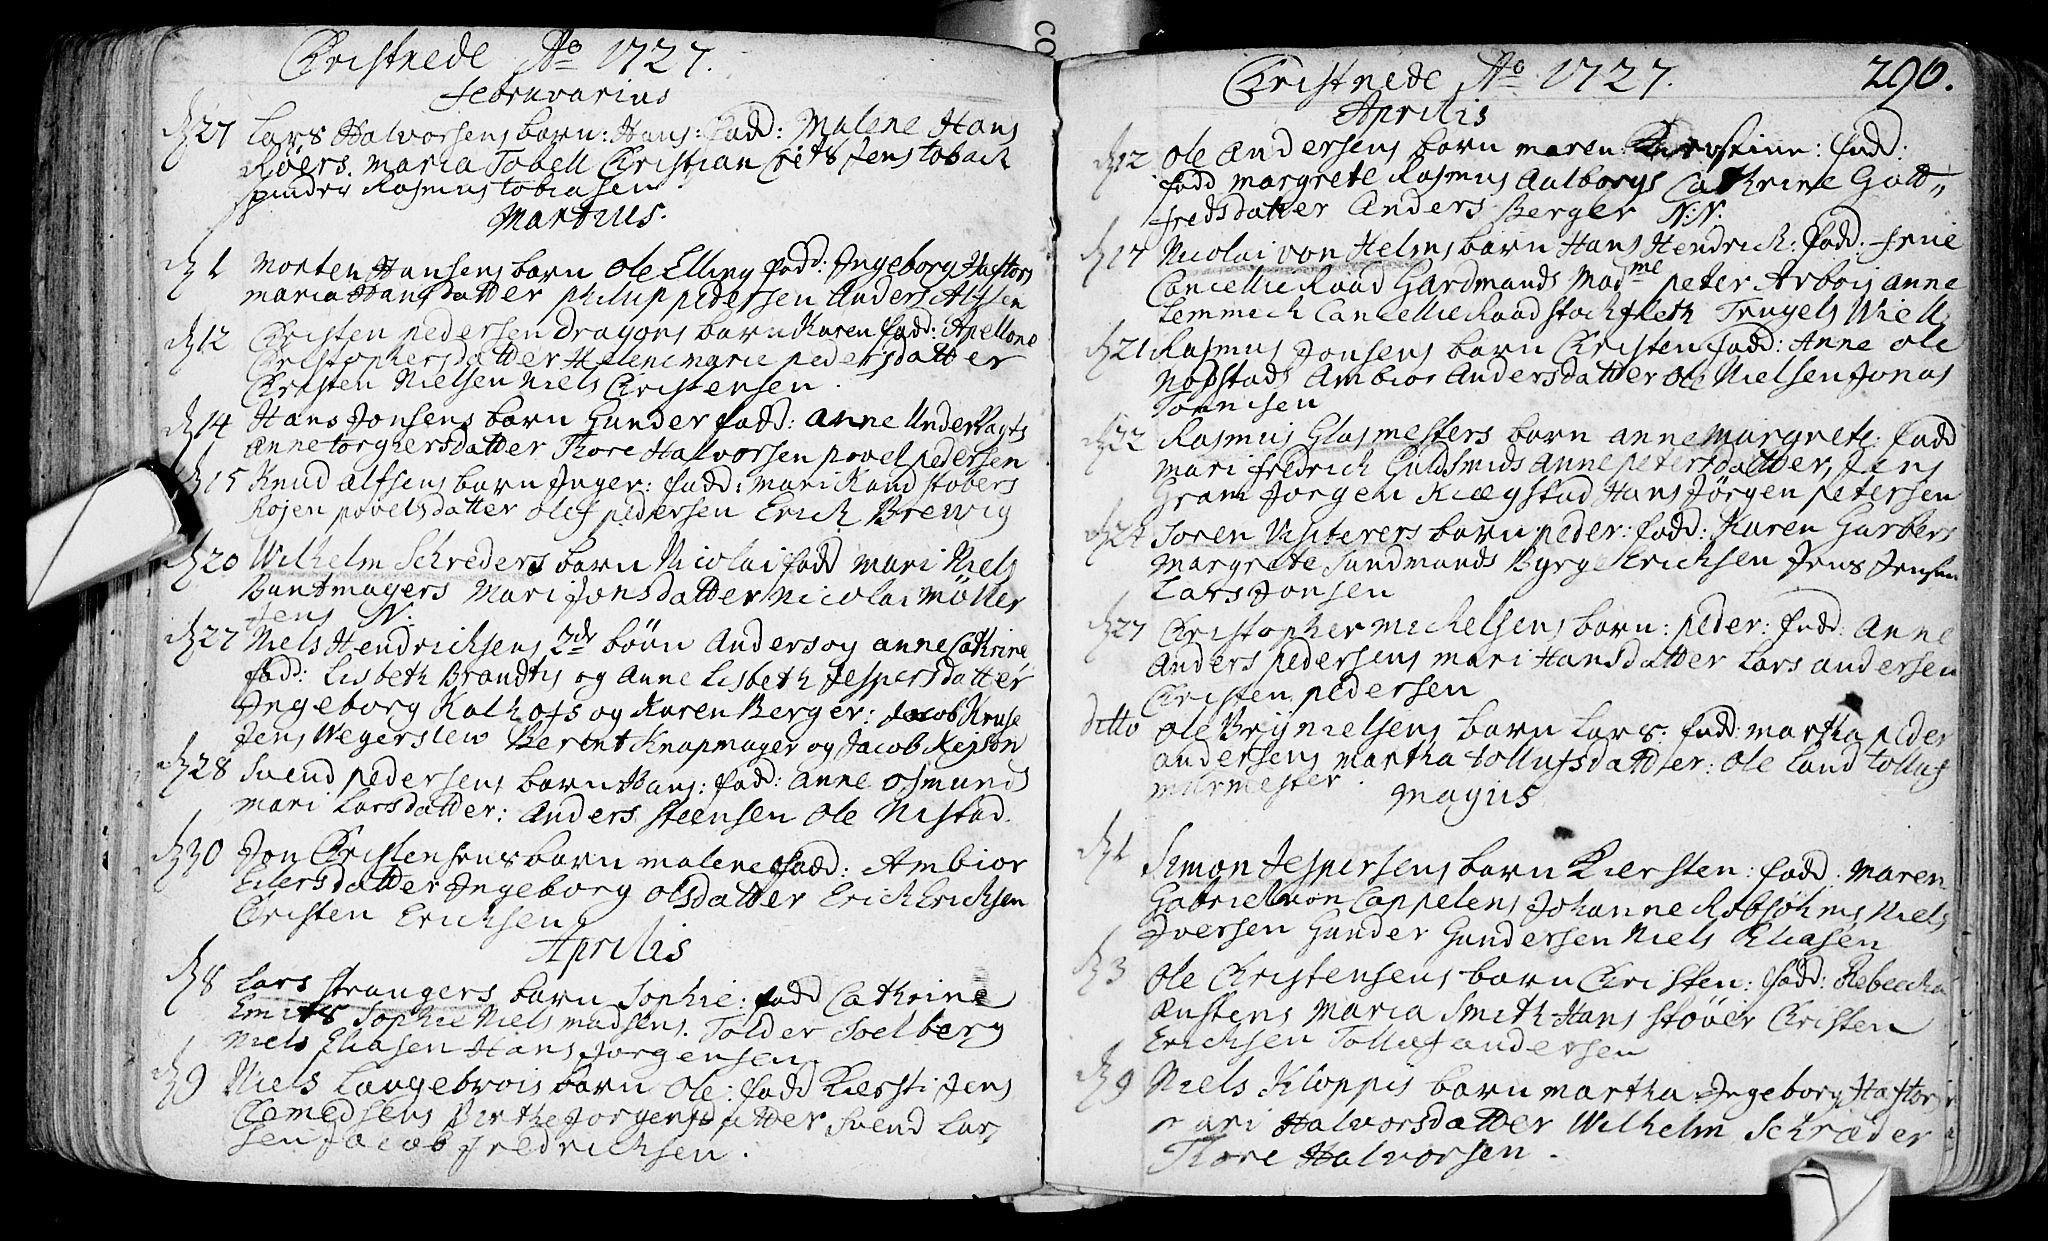 Christnede Ao 1727.
Februarius
d 27 Lars Halvorsens barn: Hans: Fadd: Malene Hans
Röers. Maria Tobell Christian Jens toback
spinder Rasmus tobiasen
Martius.
d 1 Morten Hansens barn Ole Elling fadd: Ingeborg Hastors
maria Hansdatter philup pedersen Anders Alfsen
d 12 Christen pedersen dragons barn Karen fadd: Apellone
Christophersdatter Helene marie pedersdatter
Christen Nielsen Niels Christensen.
d 14 Hans Jonsens barn Gunder fadd: anne UnderVagts
Anne torghersdatter Thore Halvorsen povel pedersen
d 15 Knud alfsens barn Inger: fadd: mari Knud stobers
Rojen povelsdatter oles pedersen Erick Brewig
d 20 Wilhelm Schreders barn Nicolai fadd mari Niels
Buntmagers Mari Jonsdatter Nicolai Möller
Jens N:
d 27 Niels Hendricksens 2de börn Anders og anne Cathrine
fadd: Lisbeth Brandtis og Anne Lisbeth Jespersdatter
Ingeborg Kalhofs og Karen Berger: Jacob Kruse
Jens Wegerslew Berent Knapmager og Jacob Kepson
d 28 Svend pedersens barn Hans: fadd: anne osmunds
mari Larsdatter: Anders steensen Ole Nistad.
d 30 Jon Christensens barn malene fadd: Ambior
Eilersdatter Ingeborg olsdatter Erick Ericksen
Christen Ericksen
Aprilis
d 8 Lars strangers barn Sophie: fadd Cathrine
Sophie Niels madsens. Tolder Soelberg
Niels Eliasen Hans Jorgensen
d 9 Niels Langebrois barn Ole: fadd Kiersti Jens
Clemedsens Birthe Jorgensdatter Svend Lar
sen Jacob fredricksen.
Christnede Ao 1727. 290.
Aprilis
d 12 Ole Andersens barn maren Kirstine: fadd:
fadd margrete Rasmus Aalborgs Cathrine Gott„
fredsdatter Anders Berger N:N:
d 17 Nicolai von Helms barn Hans Hendrick: fadd: frue
Cancellie Raad Gardmands Madme peter Arbois anne
Lemmich Cancellie Raad stockfleth Trugels Wiell
d 21 Rasmus Jonsens barn Christen fadd: Anne Ole
Nopstads Ambior Andersdatter Ole Nielsen Jonas
Tönnisen
d 22 Rasmus Glasmesters barn anne margrete: fadd
mari fredrich Guldsmids Anne petersdatter, Jens
Gram Jorgen Kiægstad Hans Jörgen petersen
d 24 Soren Visiterers barn peder: fadd: Karen Garbers
Margrete Sundmands Byrge Ericksen Jens Jensen
Lars Jonsen
d 27 Christopher mickelsens barn: peder: fadd: Anne
Anders pedersens mari Hansdatter Lars andersen
Christen pedersen
ditto Ole Brynielsens barn Lars. fadd: martha peder
andersens martha tollufsdatter: Ole Lund tolluf
murmester.
Majus
d 1 Simon Jespersens barn Kiersten: fadd: maren
Gabriel von Cappelens Johanne Robsöhms Niels
Iversen Gunder Gundersen Niels Eliasen
d 3 Ole Christensens barn Christen: fadd: Rebecka
Austens Maria Smith Hans Stöver Christen
Ericksen Tolluf andersen
d 9 Niels Kloppis barn martha Ingeborg Hastors
mari Halvorsdatter Wilhelm Schræder
Thore Halvorsen.